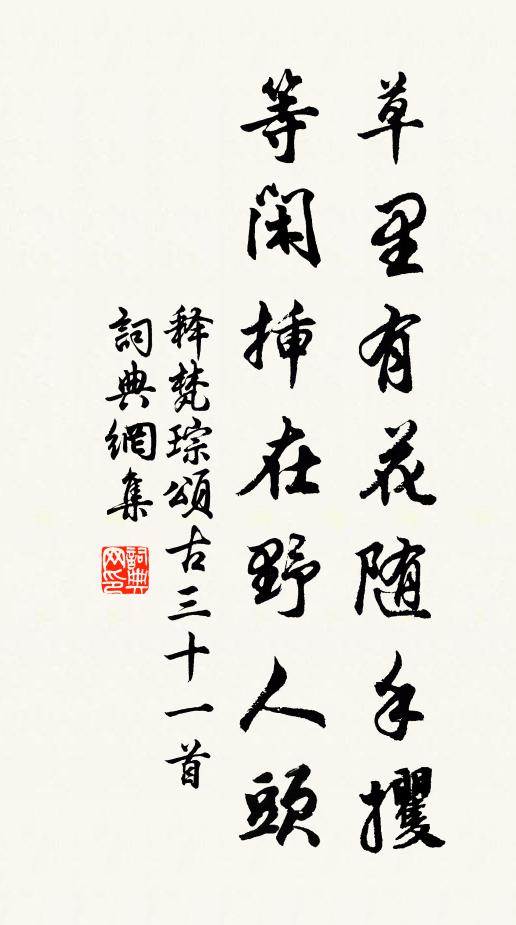 草里有花随手攫
等闲揷在野人頭
释梵琮頌古三十一首
詞典網集
詞典
网印